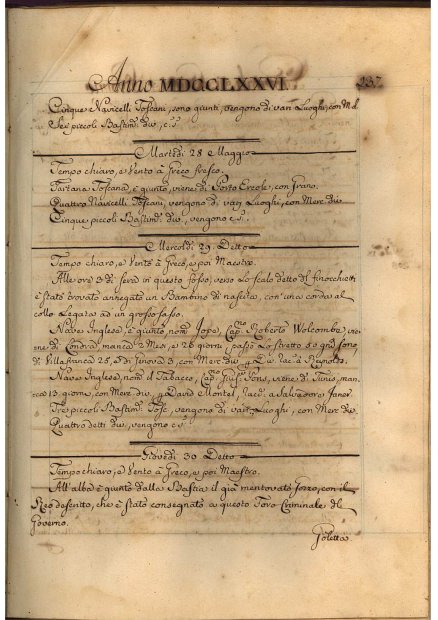 Anno MDCCLXXVI. 237
Cinque Navicelli Toscani, sono giunti, vengono di vari Luoghi, con Md.
Sei piccoli Bastim.ti div., c.s.
Martedì 28 Maggio
Tempo chiaro, e Vento à Greco fresco.
Tartana Toscana, è giunta, viene di Porto Ercole, con grano.
Quattro Navicelli Toscani, vengono di varj Luoghi, con Merc. div.
Cinque piccoli Bastim.ti div., vengono c.s.
Mercoldì 29 Detto
Tempo chiaro, e Vento à Greco, e poi Maestro.
Alle ore 3 di sera in questo fosso, verso lo scalo detto del finocchietti
è stato trovato annegato un Bambino di nascita, con una corda al
collo Legata ad un grosso sasso.
Nave Inglese, è giunta, nom. Cap.no Roberto Wolcombe, vie=
ne di Londra, manca 2 Mesi, e 26 giorni, passò Lo stretto 20 gni sono,
di Villafranca 25, e di Genova 3, con Merc. div.
Nave Inglese, nom. il Tabacco, Cap.no viene di Tunis, man=
ca 13 giorni, con Merc. div., p David Montel, Racc. a Salvadore Janer.
Tre piccoli Bastim.ti Tosc., vengono di varj Luoghi, con Merc. div.
Quattro detti div., vengono c.s.
Giovedì 30 Detto
Tempo chiaro, e Vento à Greco, e poi Maestro.
All'alba è giunto dalla Bastia il già mentovato con il
Reo descritto, che è stato consegnato a questo Foro Criminale del
Governo.
Goletta